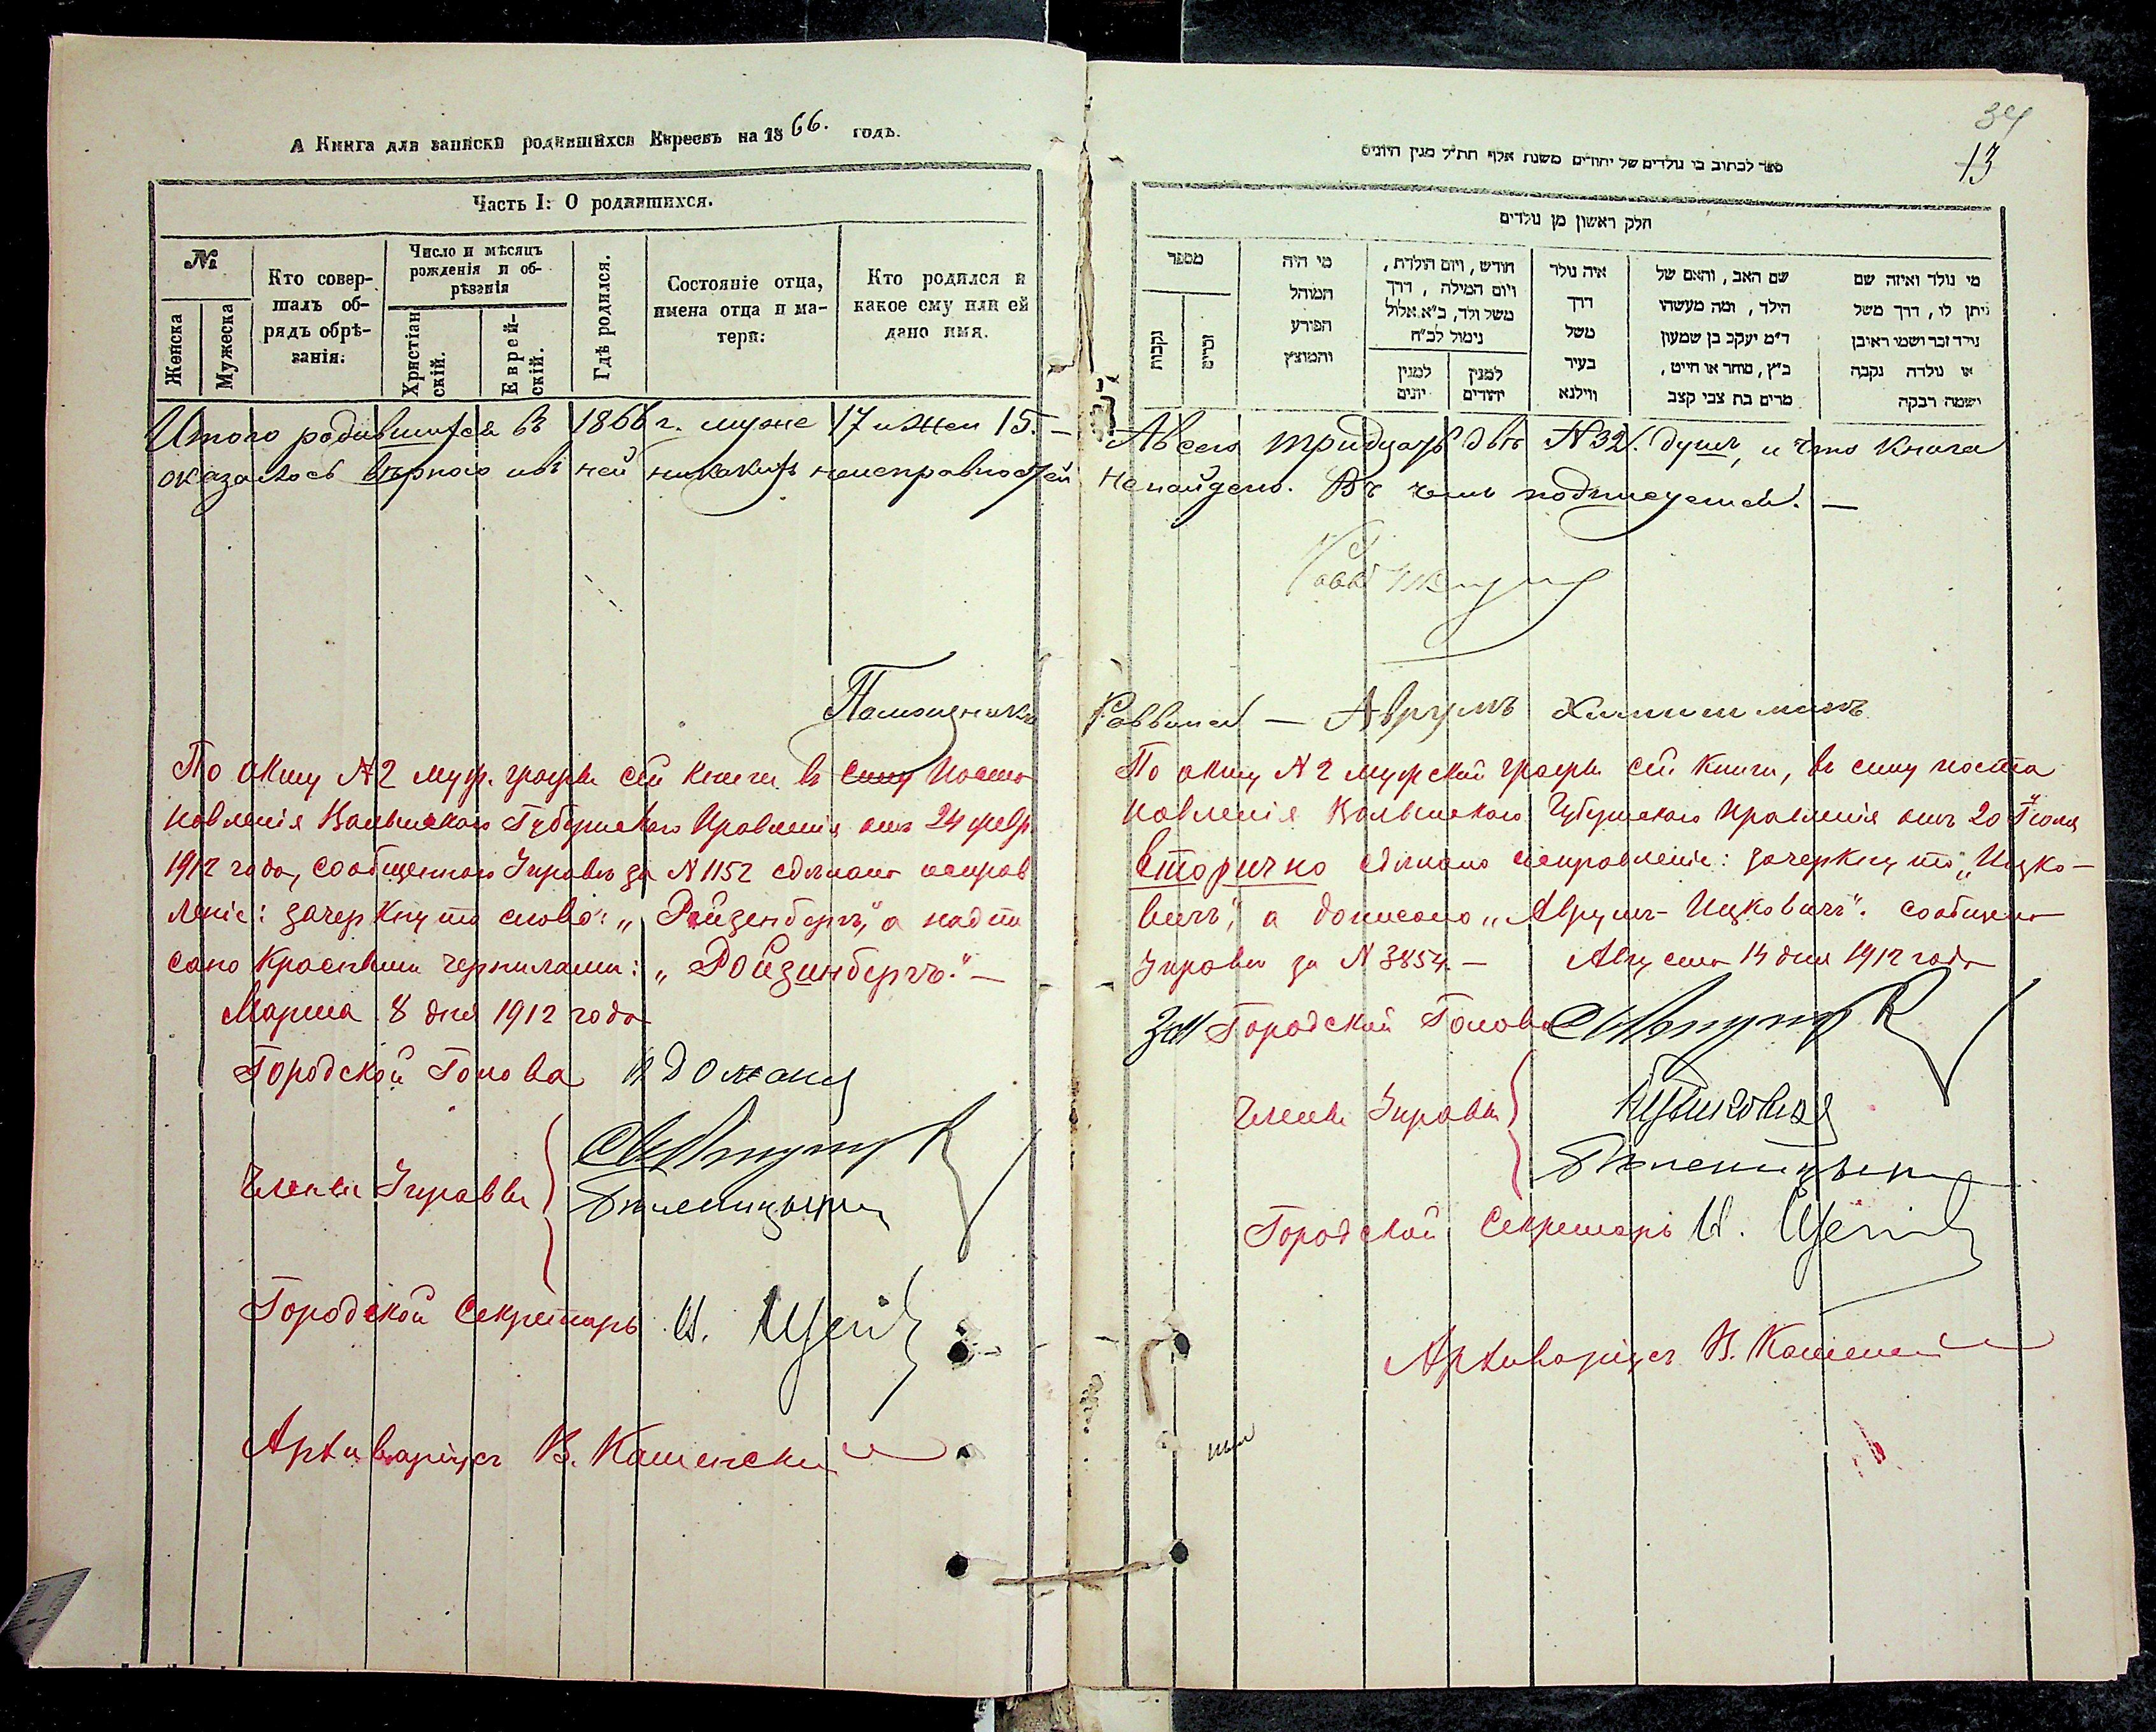 А Книга для записки родившихся Евреевъ на 1866. годъ.
Часть I: О родившихся.
№
Женска
Мужеска
Кто совер-
шалъ об-
рядъ обрѣ-
занія:
Число и мѣсяцъ
рожденія и об-
рѣзанія
Христіан
скій.
Еврей-
скій.
Гдѣ родился.
Состояніе отца,
имена отца и ма-
тери:
Кто родился и
какое ему или ей
дано имя.
Итого родившихся въ 1866 г. муже 17 и жен 15. —
оказалось вѣрною и въ ней никакихъ неисправностей
Помощникъ
По акту № 2 муж. графы сей книги въ силу Поста
новленія Волынскаго Губернскаго Правленія отъ 24 февр
1912 года, сообщеннаго Управѣ за № 1152 сдѣлано исправ
леніе: зачеркнуто слово: „Райзенбергъ," а надпи
сано красными чернилами: „Ройзинбергъ." —
Марта 8 дня 1912 года
Городской Голова
Члены Управы
Городской Секретарь И.
Архиваріусъ В. Каменскій
34
13
ספר לכתוב בו נולדים של יהודים משנת אלף תת״ל מנין היונים
חלק ראשון מן נולדים
מספר
נקבות
זכרים
מי היה
המוהל
הפורע
והמוצץ
חודש, ויום הולדת,
ויום המילה, דרך
משל ולד, כ״א אלול
נימול לכ״ח
למנין
יונים
למנין
יהודים
איה נולד
דרך
משל
בעיר
ווילנא
שם האב, והאם של
הילד, ומה מעשהו
ד״מ יעקב בן שמעון
כ״ץ, סוחר או חייט,
מרים בת צבי קצב
מי נולד ואיזה שם
ניתן לו, דרך משל
נולד זכר ושמו ראובן
או נולדה נקבה
ושמה רבקה
А всего тридцать двѣ № 32. душъ, и что книга
не найдено. Въ чемъ подписуемся. —
Раввина — Аврумъ
По акту № 2 мужской графы сей книги, въ силу поста
новленія Волынскаго Губернскаго Правленія отъ 20 Іюля
вторично сдѣлано исправленіе: зачеркнуто „Ицко-
вичъ", а дописано „Аврумъ-Ицковичъ". сообщено
Управѣ за № 3854. — Августа 14 дня 1912 года
Зам Городской Голова
Члены Управы
Городской Секретарь И.
Архиваріусъ В. Каменскій